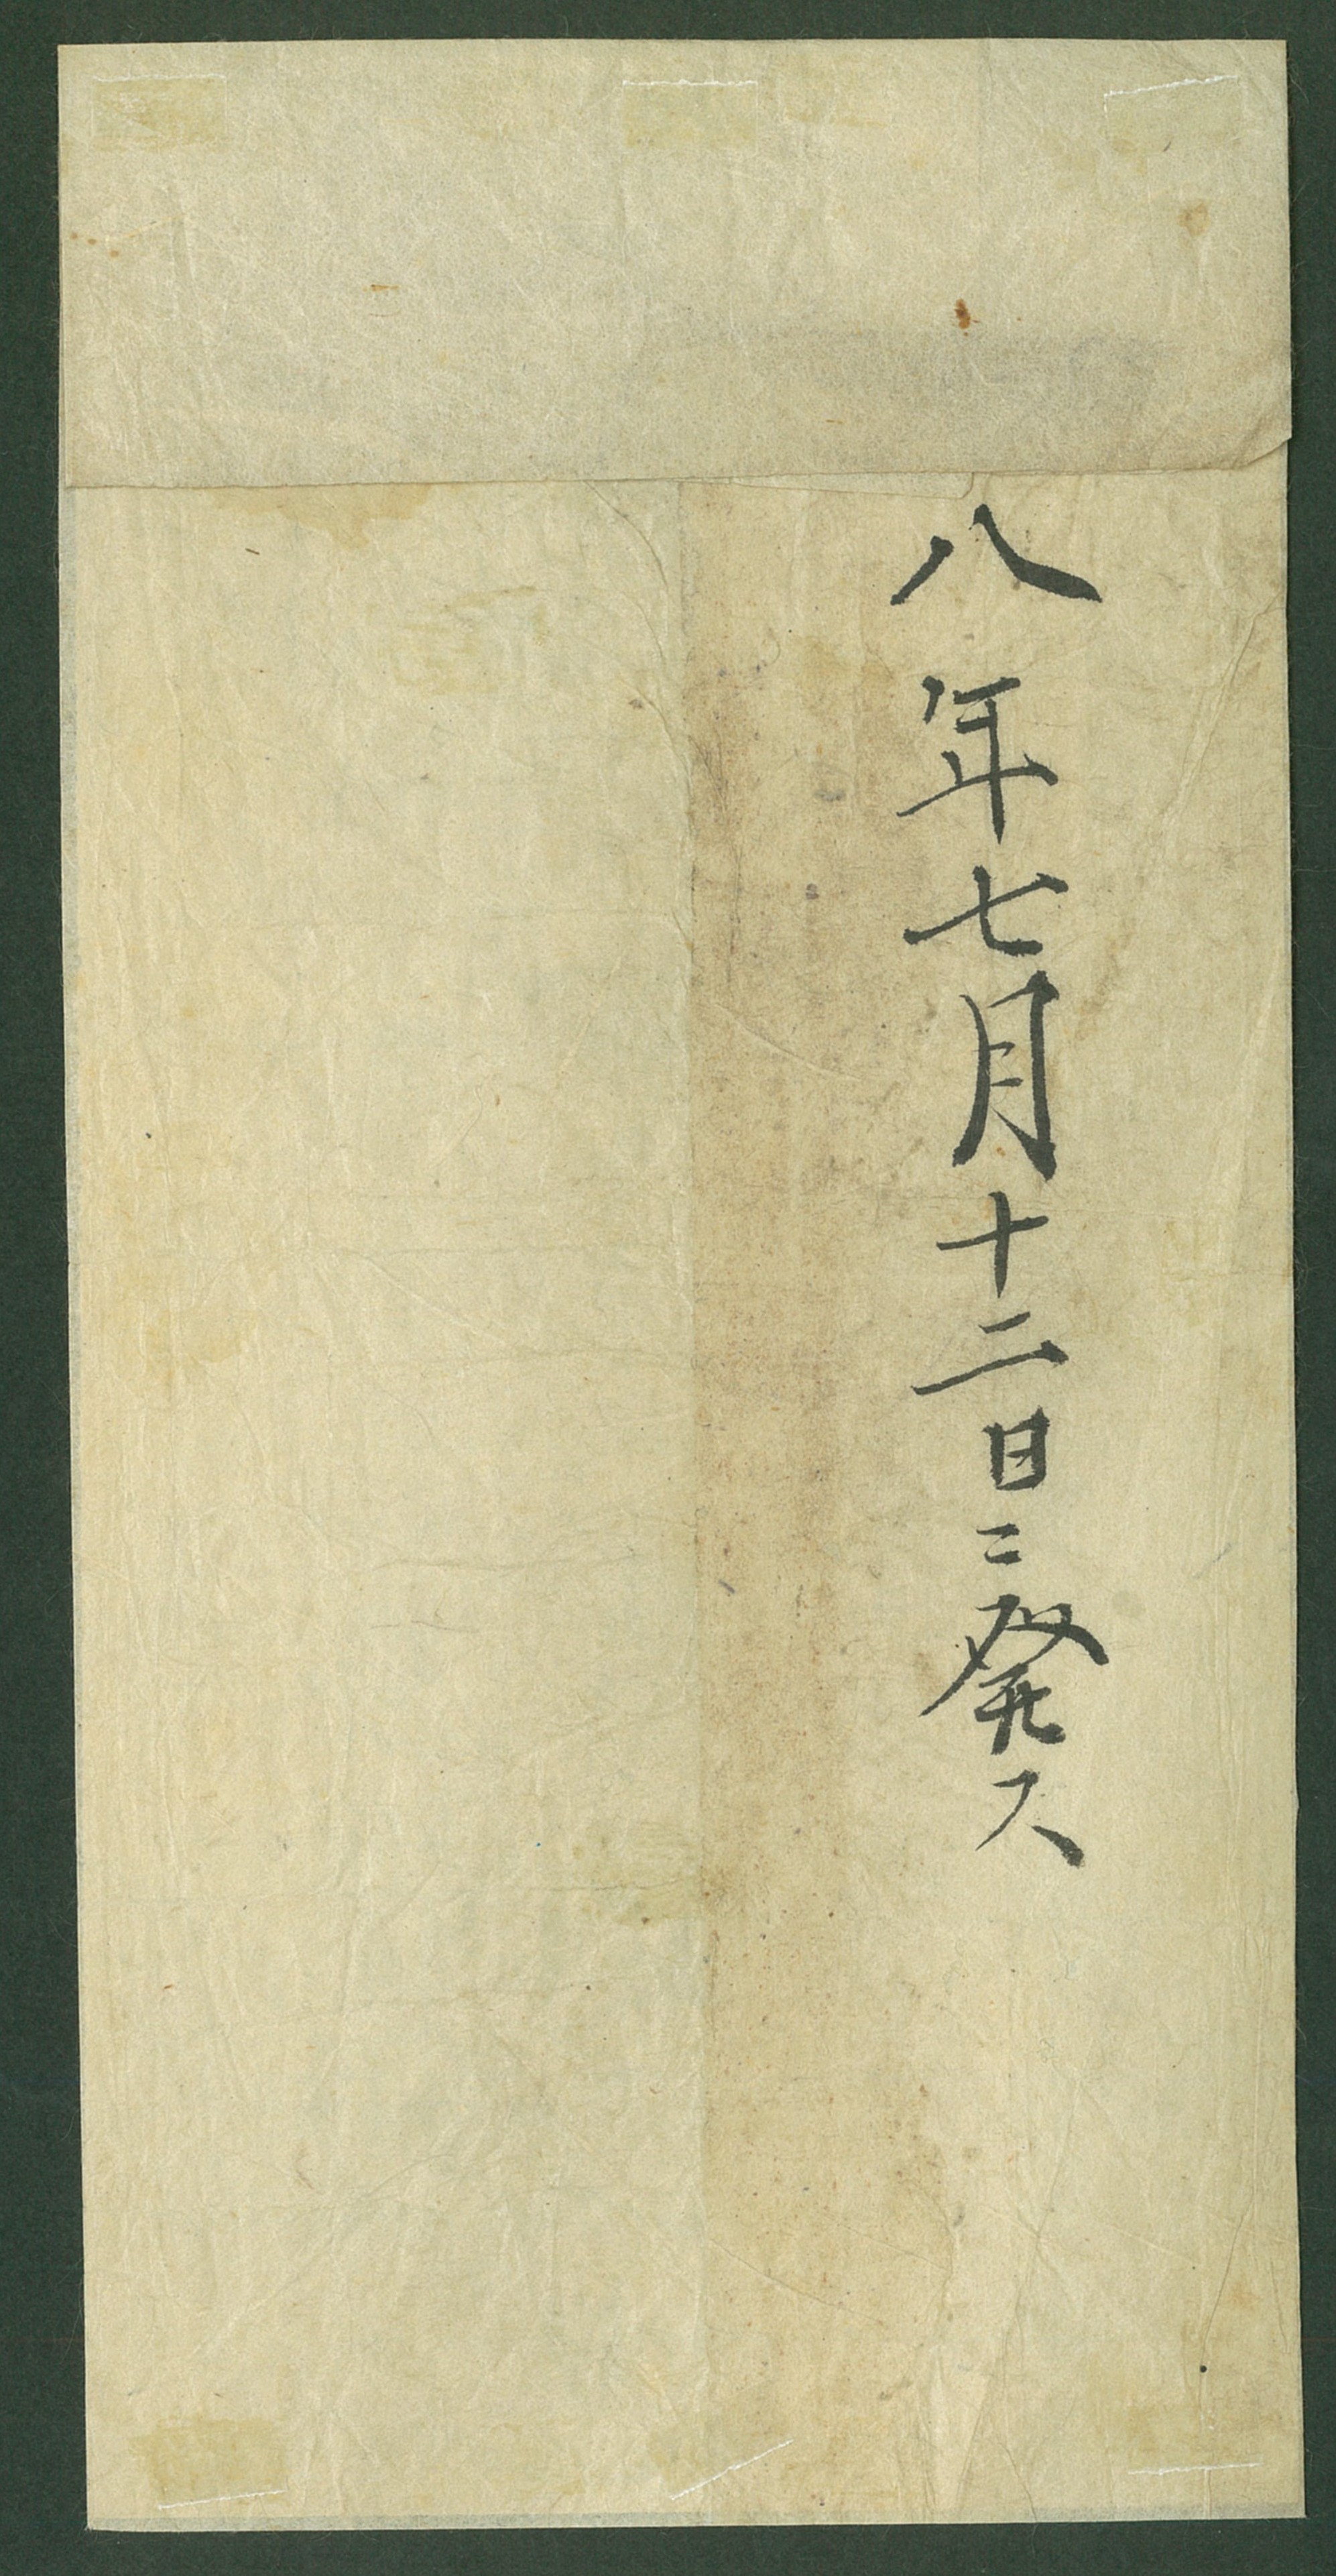 八年七月十二日ニ発ス